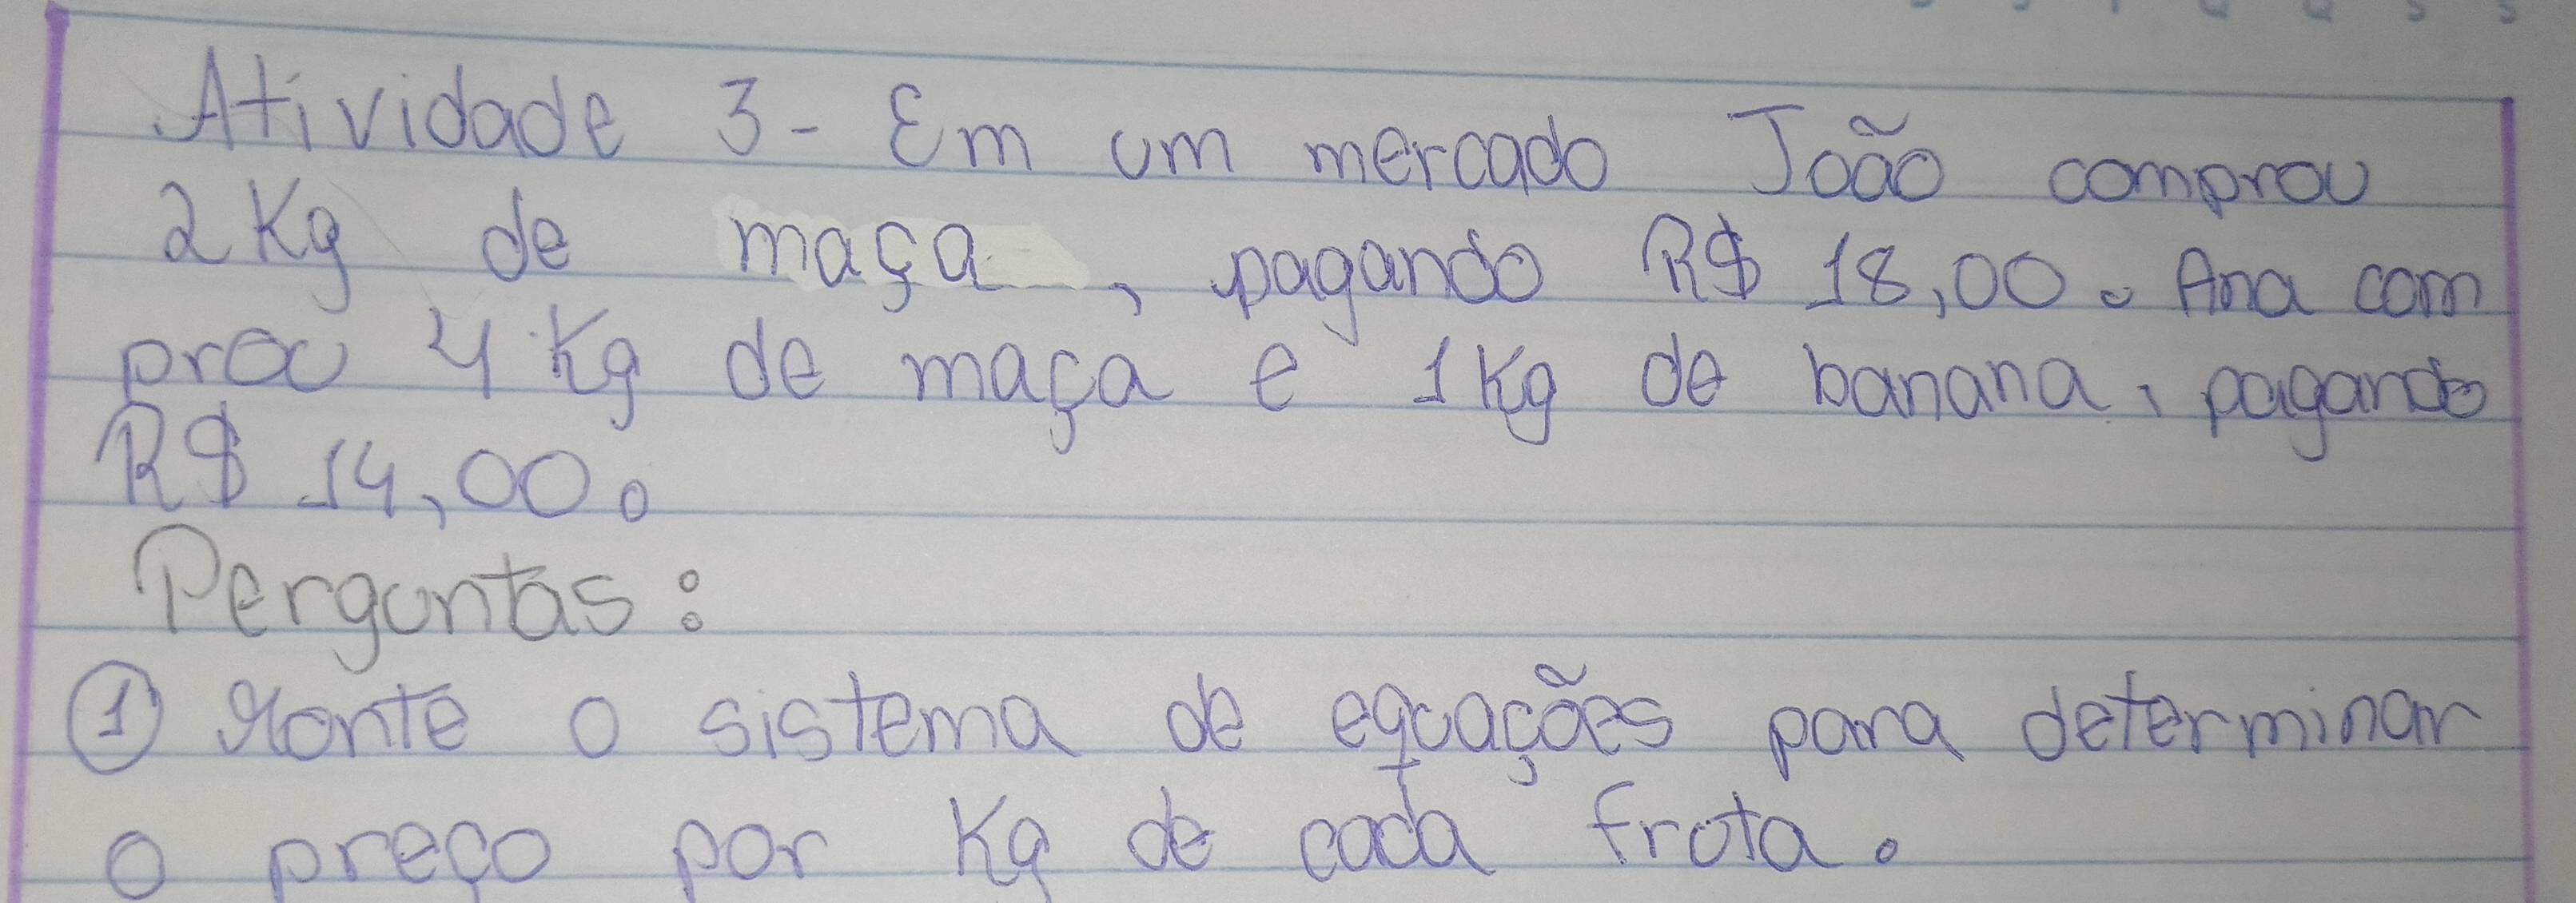 Atividade 3 - Em um mercado João comprou
2 Kg de maça, pagando R$ 18,00. Ana com
prou 4 Kg de maça e 1 Kg de banana, pagando
R$ 14,00.
Perguntas:
① Monte o sistema de equações para determinar
o preço por Kg de cada fruta.